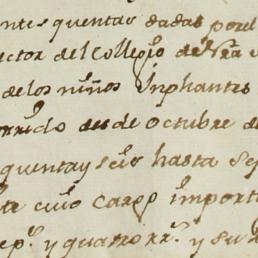 ntes quentas dadas por el
ector del Collegio de Nra S
de los niños Inphantes
orrido desde octubre de
quenta y seis hasta sep
ta cuio cargo import
sep.e y quatro rr.s y su